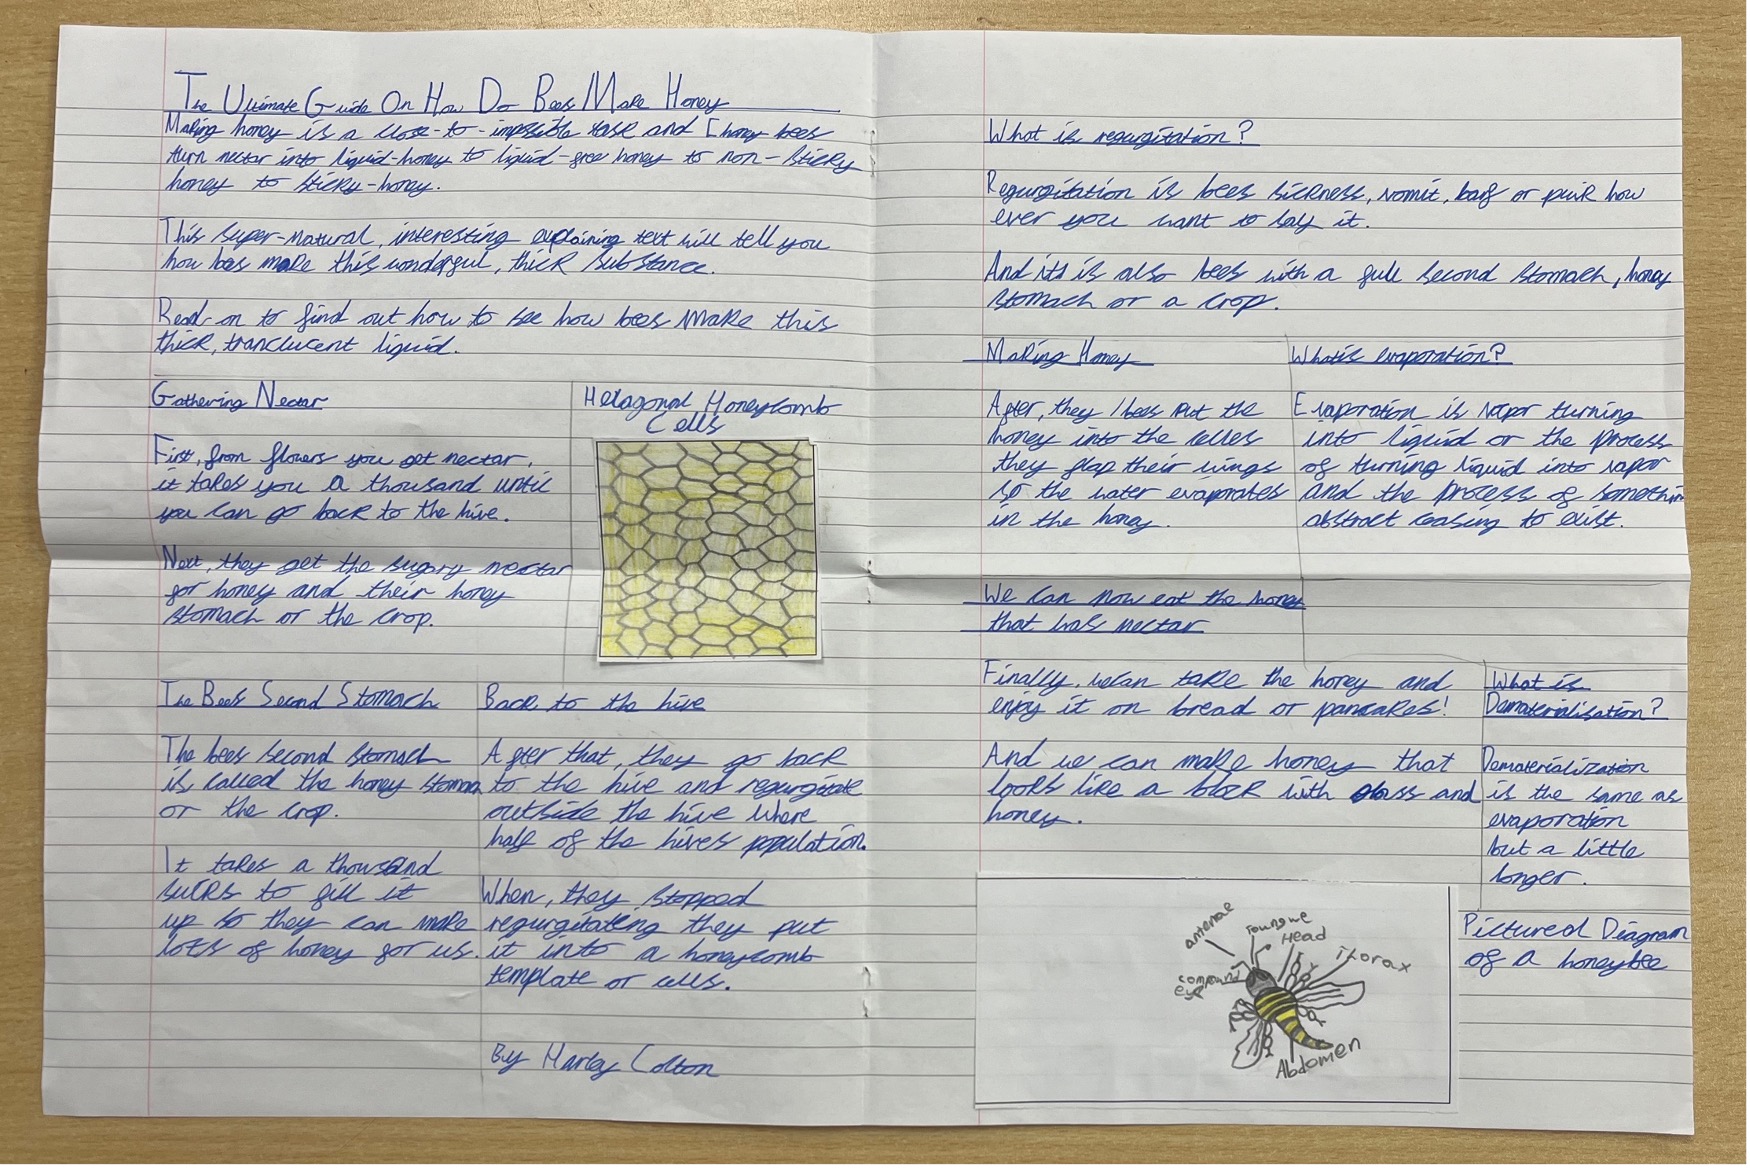 The Ultimate Guide On How Do Bees Make Honey
Making honey is a close-to-impossible task and honey bees
turn nectar into liquid-honey to liquid-free honey to non-sticky
honey to sticky-honey.
This super-natural, interesting explaining text will tell you
how bees make this wonderful, thick substance.
Read-on to find out how to see how bees make this
thick, translucent liquid.
Gathering Nectar
First, from flowers you get nectar,
it takes you a thousand until
you can go back to the hive.
Next, they get the sugary nectar
for honey and their honey
stomach or the crop.
Hexagonal Honeycomb
Cells
The Bees Second Stomach
The bees second stomach
is called the honey stomach
or the crop.
It takes a thousand
sucks to fill it
up so they can make
lots of honey for us.
Back to the hive
After that, they go back
to the hive and regurgitate
outside the hive where
half of the hives population.
When, they stopped
regurgitateing they put
it into a honeycomb
template or cells.
By Marley Colton
What is regurgitation?
Regurgitation is bees sickness, vomit, barf or puik how
ever you want to say it.
And its is also bees with a full second stomach, honey
stomach or a crop.
Making Honey
After, they/bees put the
honey into the celles
they flap their wings
so the water evaporates
in the honey.
What is evaporation?
Evaporation is vapor turning
into liquid or the process
of turning liquid into vapor
and the process of somethin
abstract ceasing to exist.
We can now eat the honey
that was nectar
Finally, wecan take the honey and
enjoy it on bread or pancakes!
And we can make honey that
looks like a block with glass and
honey.
What is
Dematerialisation?
Dematerialization
is the same as
evaporation
but a little
longer.
antenae
Toungue
Head
Thorax
compound
eye
Abdomen
Pictured Diagram
of a honeybee